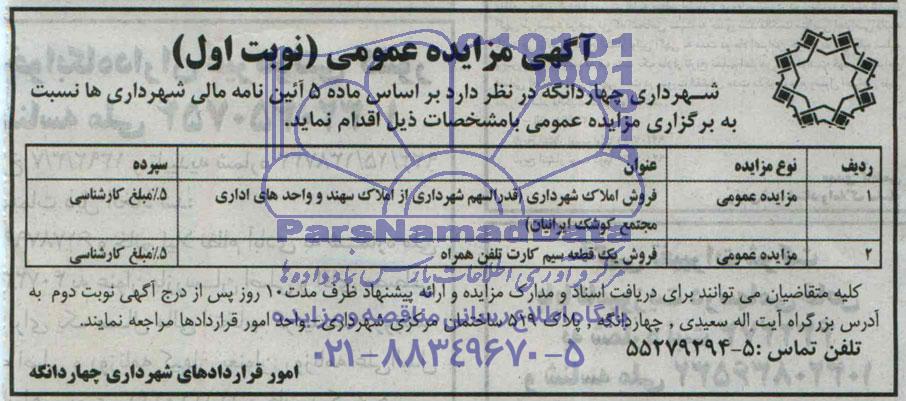 آگهی مزایده عمومی (نوبت اول)
شهرداری چهاردانگه در نظر دارد بر اساس ماده ۵ آئین نامه مالی شهرداری ها نسبت
به برگزاری مزایده عمومی بامشخصات ذیل اقدام نماید.
ردیف نوع مزایده عنوان سپرده
۱ مزایده عمومی فروش املاک شهرداری (قدرالسهم شهرداری از املاک سهند و واحد های اداری ۵٪مبلغ کارشناسی
مجتمع کوشک ایرانیان)
۲ مزایده عمومی فروش یک قطعه سیم کارت تلفن همراه ۵٪مبلغ کارشناسی
کلیه متقاضیان می توانند برای دریافت اسناد و مدارک مزایده و ارائه پیشنهاد ظرف مدت۱۰ روز پس از درج آگهی نوبت دوم به
آدرس بزرگراه آیت اله سعیدی , چهاردانگه , پلاک ۵۱۹ ساختمان مرکزی شهرداری , واحد امور قراردادها مراجعه نمایند.
تلفن تماس :۵-۵۵۲۷۹۲۹۴
امور قراردادهای شهرداری چهاردانگه
ParsNamadData
مرکز فرآوری اطلاعات پارس نماد داده ها
پایگاه اطلاع رسانی مناقصه و مزایده
۰۲۱-۸۸۳۴۹۶۷۰-۵